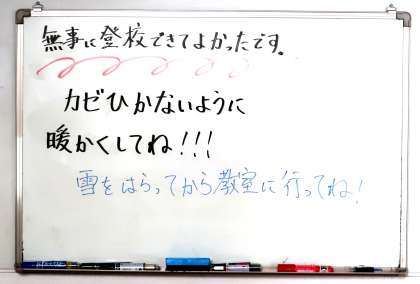 無事に登校できてよかったです。
カゼひかないように
暖かくしてね!!!
雪をはらってから教室に行ってね!